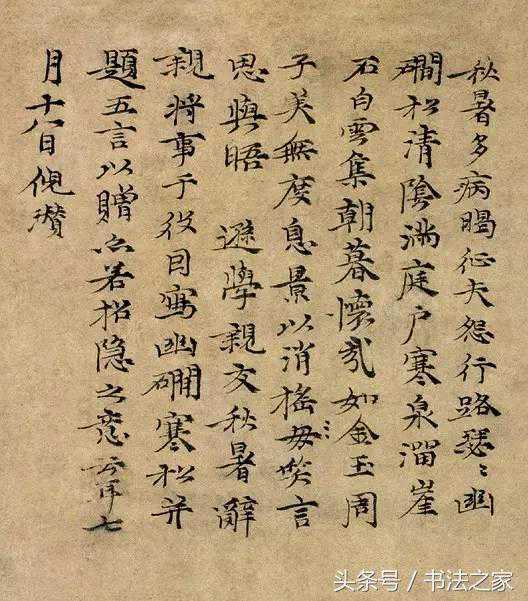 秋暑多病暍征夫怨行路瑟〻幽
磵松清陰滿庭户寒泉溜崖
石白雲集朝暮懷哉如金玉周
子美無度息景以消搖毋笑言
思與晤 遜學親友秋暑辭
親將事于役因寫幽磵寒松并
題五言以贈亦若招隱之意云耳七
月十八日倪瓚
头条号 / 书法之家